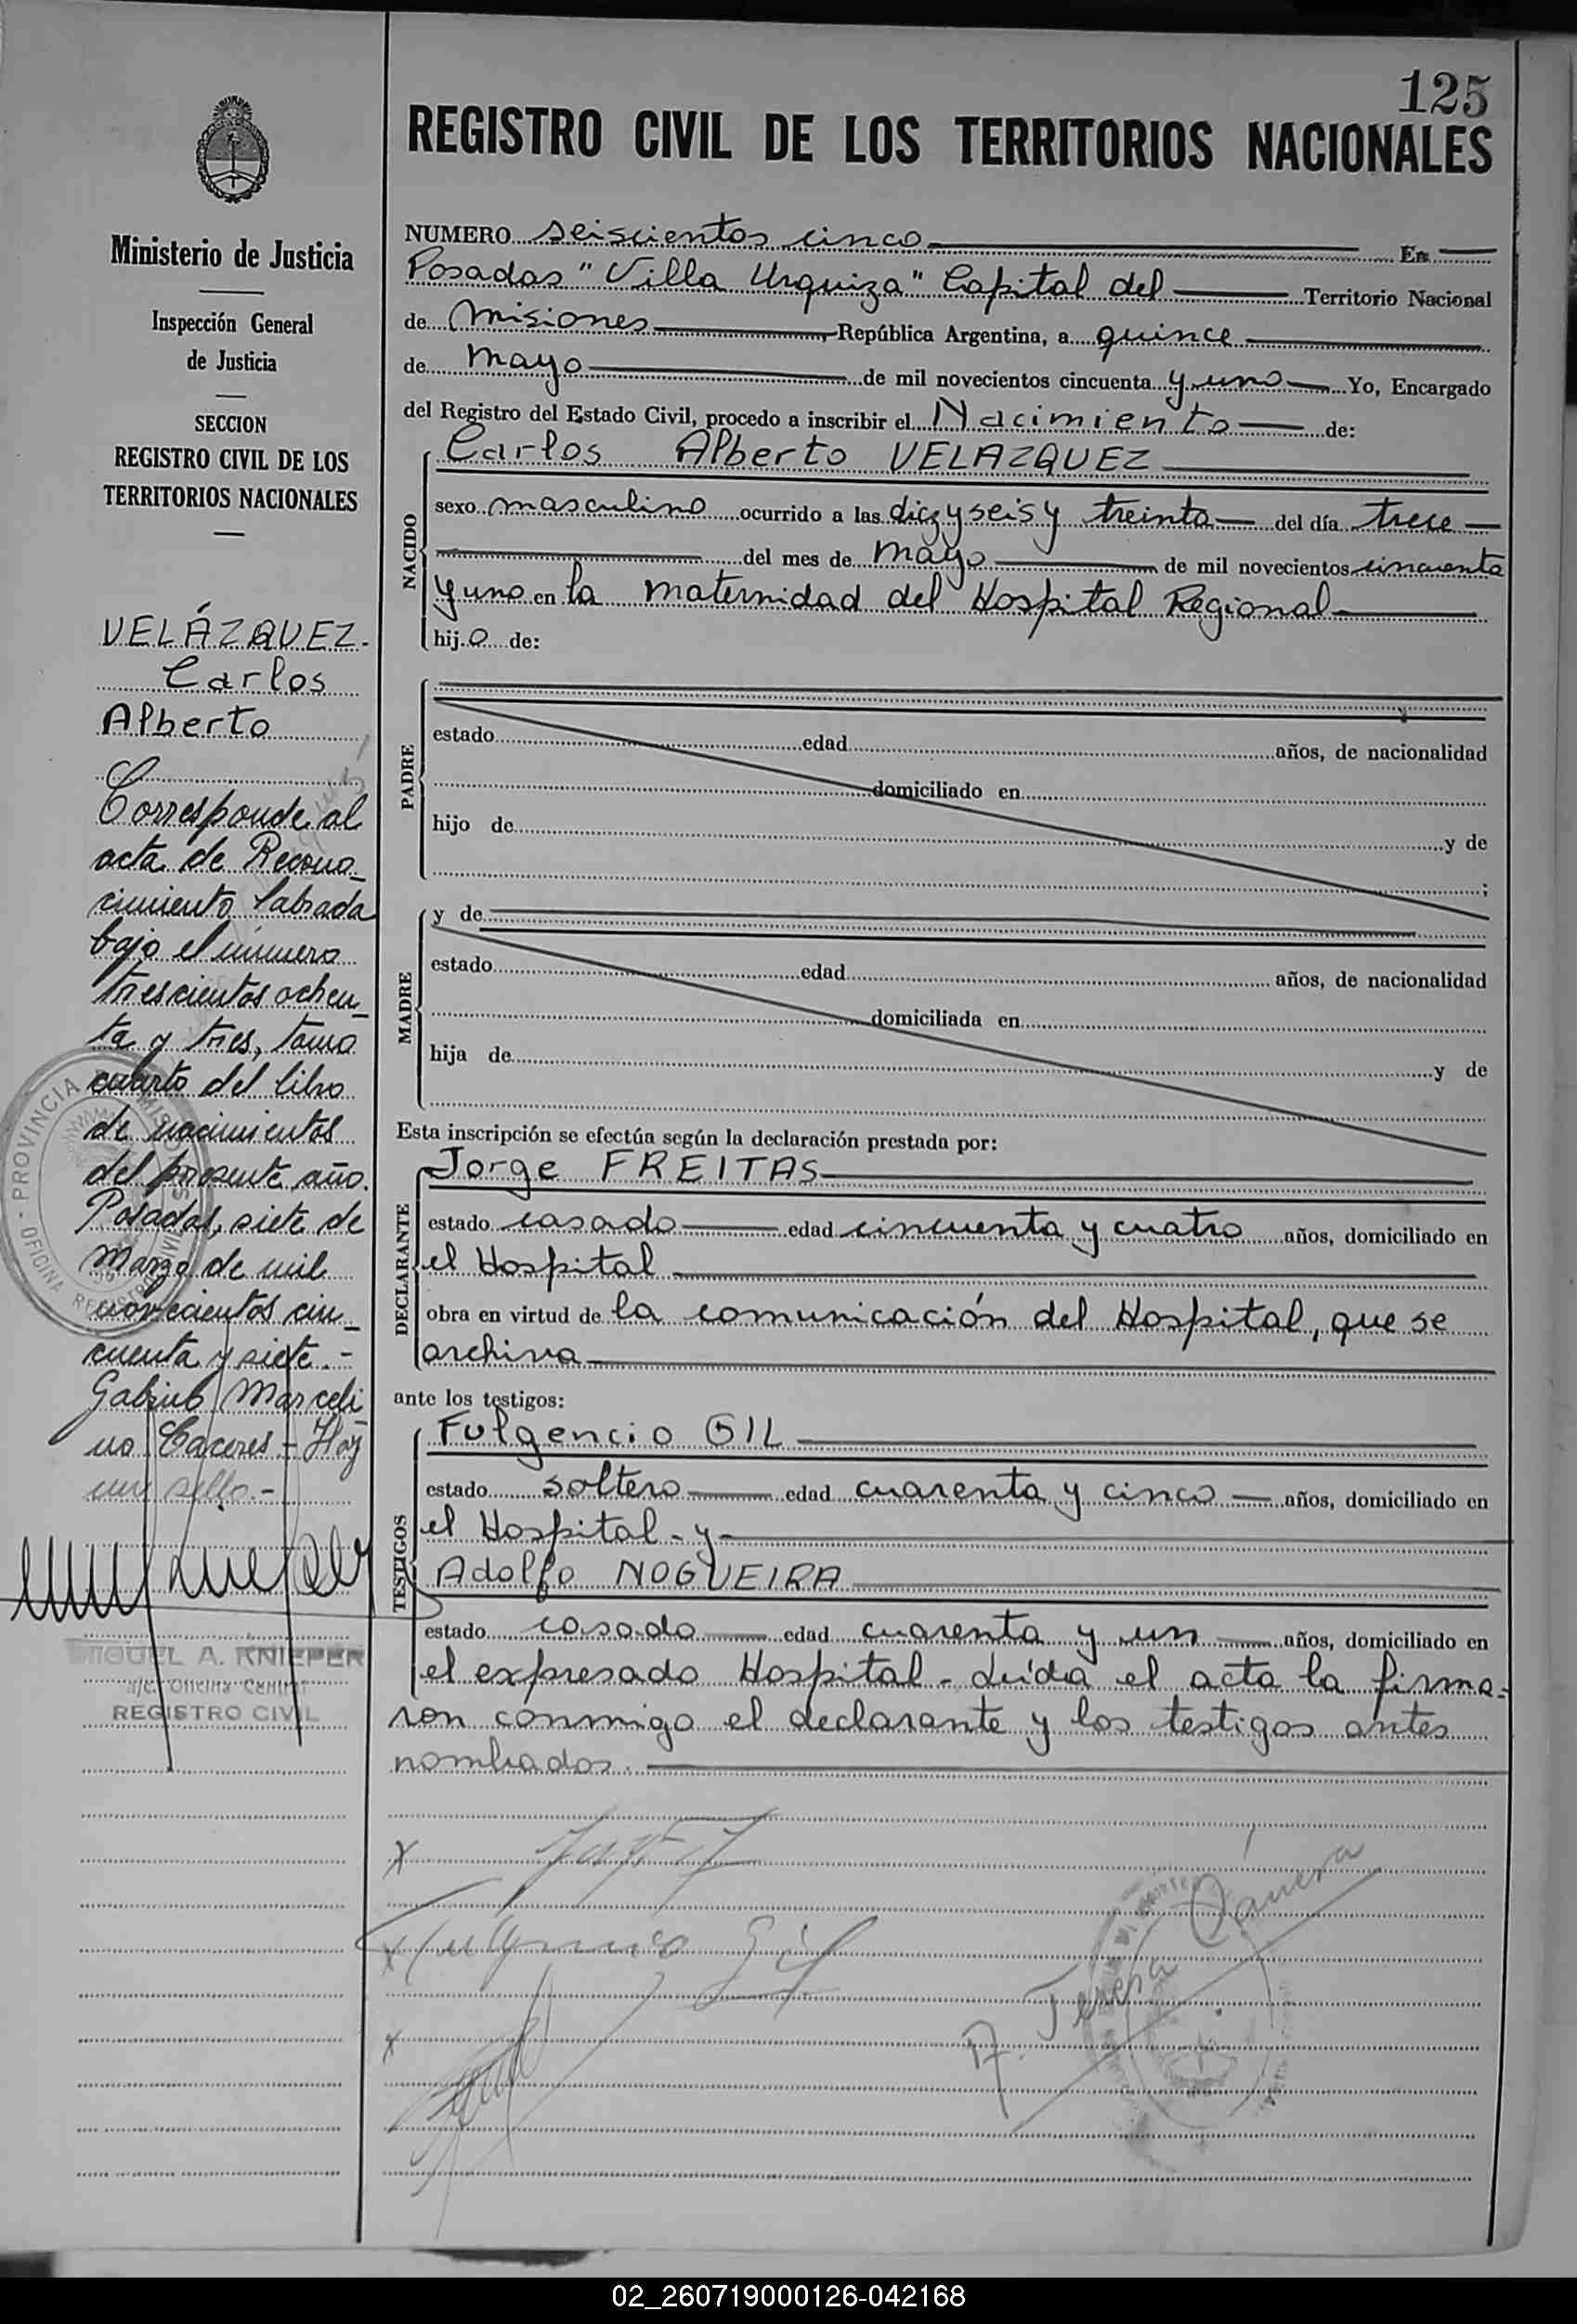 125
REGISTRO CIVIL DE LOS TERRITORIOS NACIONALES
Ministerio de Justicia
Inspección General
de Justicia
SECCION
REGISTRO CIVIL DE LOS
TERRITORIOS NACIONALES
VELÁZQUEZ-
Carlos
Alberto
Corresponde al
acta de Recono_
cimiento labrada
bajo el número
trescientos ochen_
ta y tres, tomo
cuarto del libro
de nacimientos
del presente año.
Posadas, siete de
Marzo de mil
novecientos cin_
cuenta y siete.-
Gabriel Marceli_
no Caceres - Hay
un sello.-
PROVINCIA
OFICINA
MIGUEL A. KNIEPER
Oficina Central
REGISTRO CIVIL
NUMERO seiscientos cinco En
Posadas "Villa Urquiza" Capital del Territorio Nacional
de Misiones República Argentina, a quince
de mayo de mil novecientos cincuenta y uno Yo, Encargado
del Registro del Estado Civil, procedo a inscribir el Nacimiento de:
NACIDO
Carlos Alberto VELAZQUEZ
sexo masculino ocurrido a las diez y seis y treinta del día trece
del mes de mayo de mil novecientos cincuenta
y uno en la maternidad del Hospital Regional
hij.o de:
PADRE
estado edad años, de nacionalidad
domiciliado en
hijo de y de
;
MADRE
y de
estado edad años, de nacionalidad
domiciliada en
hija de y de
Esta inscripción se efectúa según la declaración prestada por:
DECLARANTE
Jorge FREITAS
estado casado edad cincuenta y cuatro años, domiciliado en
el Hospital
obra en virtud de la comunicación del Hospital, que se
archiva
ante los testigos:
TESTIGOS
Fulgencio GIL
estado soltero edad cuarenta y cinco años, domiciliado en
el Hospital - y -
Adolfo NOGUEIRA
estado casado edad cuarenta y un años, domiciliado en
el expresado Hospital - Leída el acta la firma-
ron conmigo el declarante y los testigos antes
nombrados.
x
x Fulgencio Gil
x
A. Teresa
02_260719000126-042168